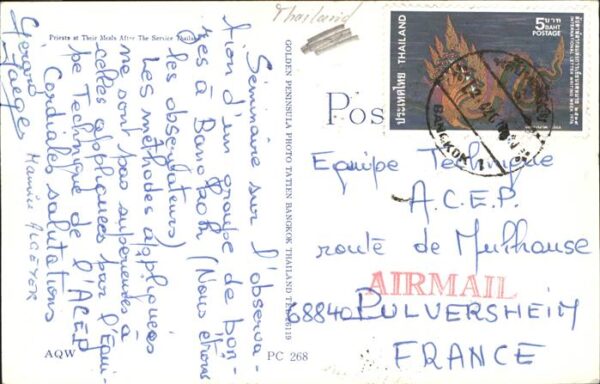 Thailand
Priests at Their Meals After The Service Thailand
Séminaire sur l'observa-
tion d'un groupe de bon-
zes à Bangkok (Nous étions
les observateurs)
Les méthodes appliquées
ne sont pas supérieures à
celles appliquées par l'Equi-
pe Technique de l'ACEP
Cordiales salutations
Gérard
Jaeger
AQW
PC 268
GOLDEN PENINSULA PHOTO BANGKOK THAILAND
Pos
5 บาท
BAHT
POSTAGE
INTERNATIONAL LETTER WRITING WEEK
ประเทศไทย THAILAND
BANGKOK 1
Equipe Technique
A.C.E.P.
route de Mulhouse
AIRMAIL
68840 PULVERSHEIM
FRANCE